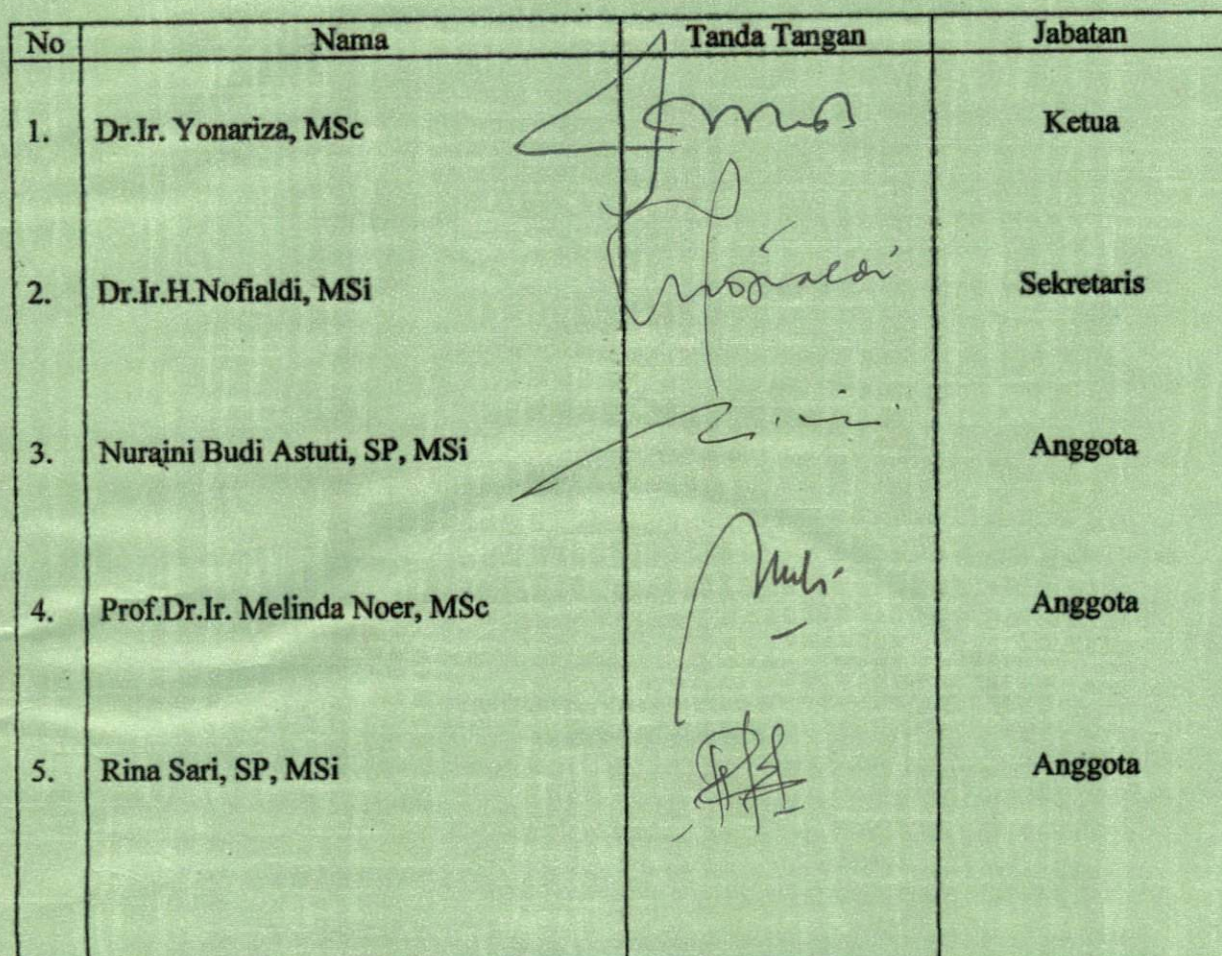 No Nama Tanda Tangan Jabatan
1. Dr.Ir. Yonariza, MSc Ketua
2. Dr.Ir.H.Nofialdi, MSi Nofialdi Sekretaris
3. Nuraini Budi Astuti, SP, MSi Anggota
4. Prof.Dr.Ir. Melinda Noer, MSc Anggota
5. Rina Sari, SP, MSi Anggota